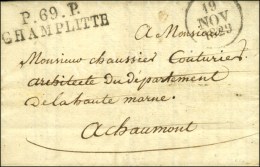 P.69.P.
CHAMPLITTE
19
NOV
1829
A Monsieur
Monsieur chaussier Couturier
architecte du département
de la haute marne.
A chaumont